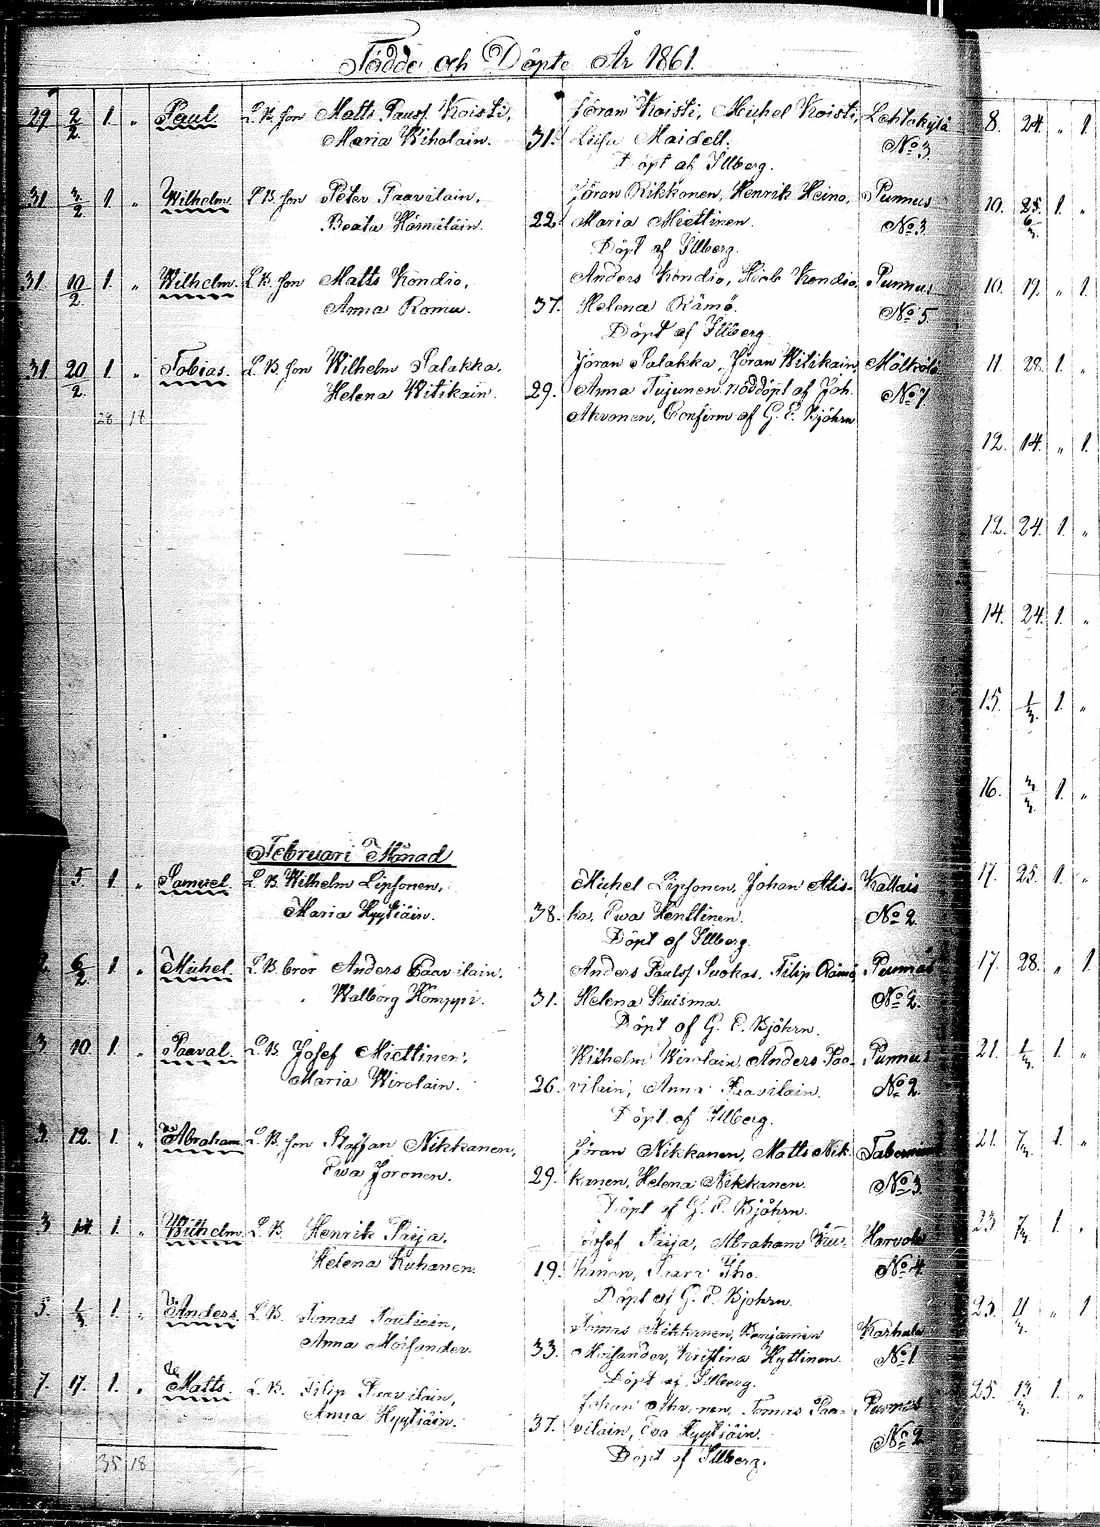 Födde och Döpte År 1861.
29 2/2 1. „ Paul. L. B. son Matts Paulss. Koisti, Jöran Koisti, Michel Koisti, Lehtokylä
Maria Wiholain. 31. Liisa Maidell. No 3.
Döpt af Illberg.
31 3/2 1. „ Wilhelm L B. son Peter Paavilain, Jöran Rikkonen, Henrik Heino, Punnus
Beata Hämäläin. 22. Maria Miettinen. No 3
Döpt af Illberg.
31. 10/2 1. „ Wilhelm. L B. son Matts Kondio, Anders Kondio, Jacob Kondio, Punnus
Anna Romu. 37. Helena Rämö. No 5.
Döpt af Illberg
31 20/2 1. „ Tobias. L. B. son Wilhelm Palakka, Jöran Palakka, Jöran Witikain, Mälkölä
Helena Witikain. 29. Anna Tujunen. nöddöpt af Joh. No 7
28 18 Ahvonen, Confirm af G. E. Bjöhrn
Februari Månad
5. 1. „ Samuel. L. B. Wilhelm Lipsonen, Michel Lipsonen, Johan Alis- Kallais
Maria Hyytiäin. 38. ka, Ewa Henttinen. No 2.
Döpt af Illberg.
2. 6/2 1. „ Michel. L. B. bror Anders Paavilain. Anders Paulss Suokas, Filip Rämö, Punnus
Walborg Kömppi. 31. Helena Kuisma. No 2.
Döpt af G. E. Bjöhrn.
3 10 1. „ Paaval. L. B. Josef Miettinen, Wilhelm Wirolain, Anders Paa- Punnus
Maria Wirolain. 26. vilain, Anna Paavilain. No 2.
Döpt af Illberg.
3. 12. 1. „ Abraham L. B. son Staffan Nikkanen, Jöran Nikkanen, Matts Nik-
Ewa Joronen. 29. kanen, Helena Nikkanen. No 3.
Döpt af G. E. Bjöhrn.
3 14 1. „ Wilhelm L. B. Henrik Paija, Josef Paija, Abraham
Helena Kuhanen. 19. No 4
Döpt af G. E. Bjöhrn.
5. 1/3 1. „ Anders. L. B. Tomas Nikkanen, Benjamin Karhula
Anna Moisander. 33. Moisander, Kristina Hyttinen. No 1
Döpt af Illberg.
7. 17. 1. „ Matts. L. B. Filip Paavilain, Johan Ahvonen, Tomas Paa- Punnus
Anna Hyytiäin. 37. vilain, Eva Hyytiäin. No 2
Döpt af Illberg.
35 18
8. 24. „ 1.
10. 25. 1. „
10. 19. „ 1.
11 28. 1. „
12. 14. „ 1.
12. 24. 1. „
14. 24. 1. „
15. 1/3. 1. „
16. 3/3 1. „
17. 25. 1. „
17. 28. „ 1
21. 1/3 1. „
21. 7/3. 1. „
23 7/3. 1. „
23. 11/3. „ 1
25. 13/3. 1. „